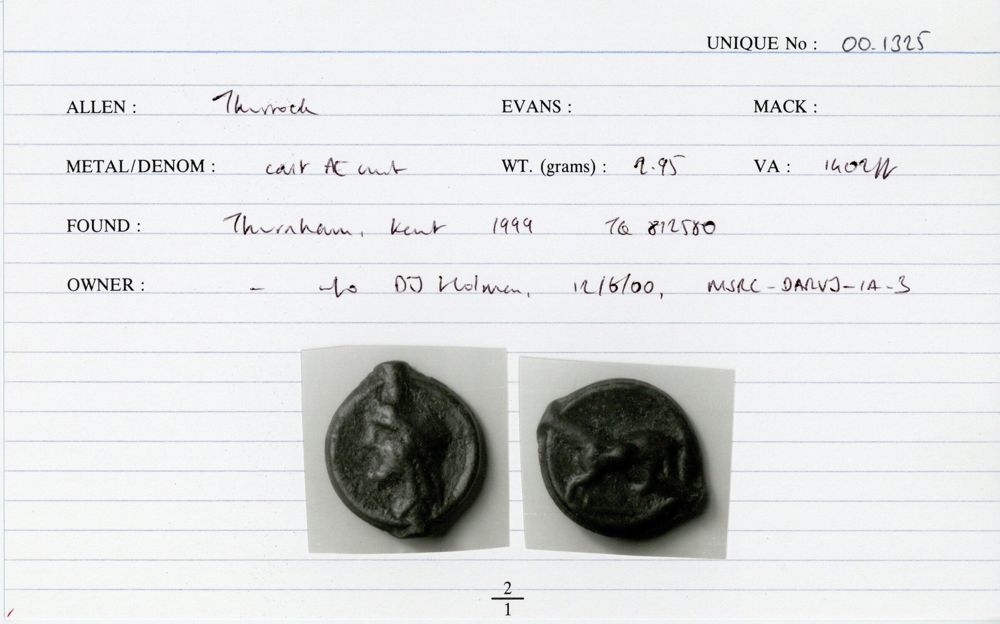 UNIQUE No : 00.1325
ALLEN : Thurrock EVANS : MACK :
METAL/DENOM : cast Æ unit WT. (grams) : 2.95 VA : 1402ff
FOUND : Thurnham, Kent 1999 TQ 812580
OWNER : - i/o DJ Holman, 12/6/00, MSRC-DARVJ-1A-3
2
1